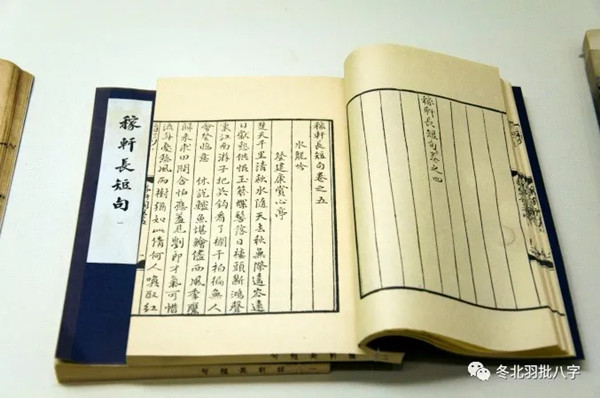 稼軒長短句卷之四
稼軒長短句卷之五
水龍吟
登建康賞心亭
楚天千里清秋水隨天去秋無際遙岑遠
目獻愁供恨玉簪螺髻落日樓頭斷鴻聲
裏江南游子把吳鈎看了欄干拍徧無人
會登臨意 休說鱸魚堪鱠儘西風季鷹
歸未求田問舍怕應羞見劉郎才氣可惜
流年憂愁風雨樹猶如此倩何人喚取紅
稼軒長短句
一
冬北羽批八字